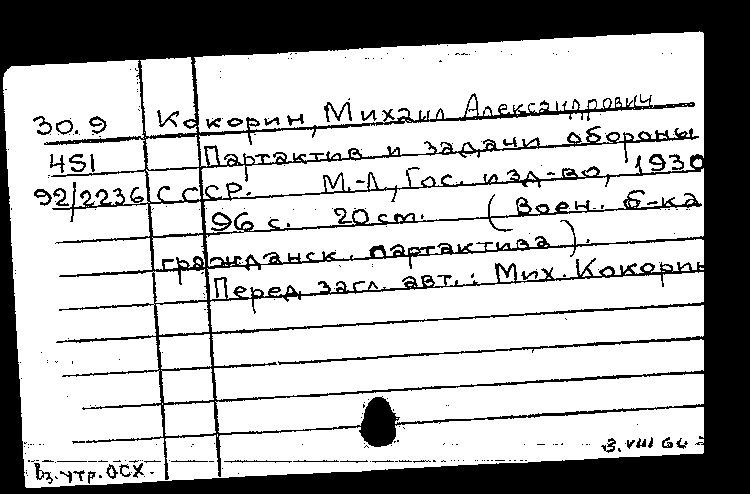 30.9 Кокорин, Михаил Александрович
4SI Партактив и задачи обороны
92/2236 СССР. М.-Л., Гос. изд-во, 1930
96 с. 20 cm. (Воен. б-ка
гражданск. партактива).
Перед загл. авт.: Мих. Кокорин
3. VIII 64
Вз. утр. ОСХ.